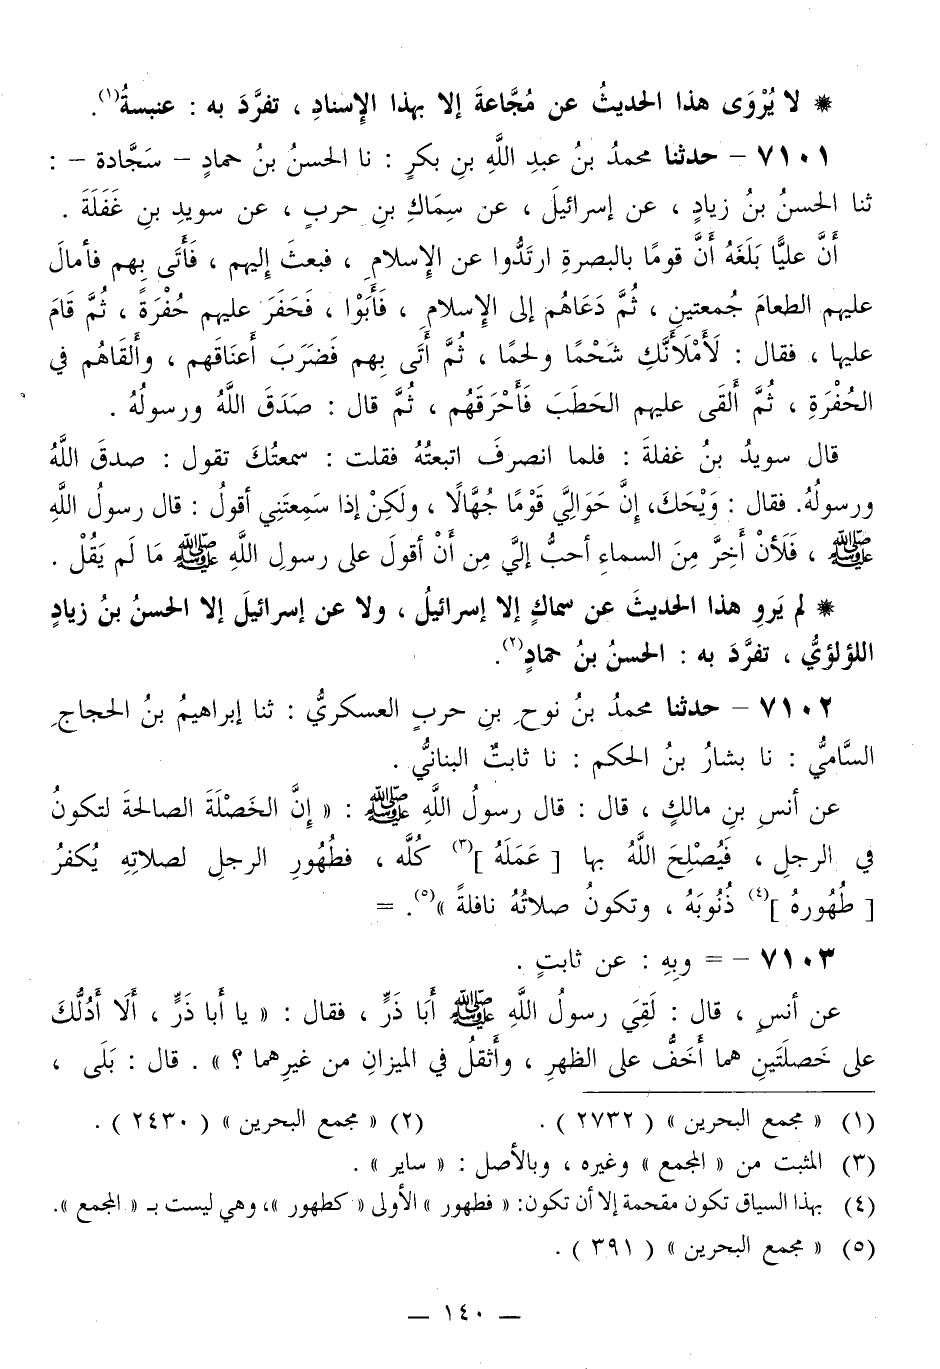 * لا يُرْوَى هذا الحديثُ عن مُجَّاعةَ إلا بهذا الإسنادِ ، تفرَّدَ به : عنبسةُ(١).
٧١٠١ – حدثنا محمدُ بنُ عبدِ اللَّهِ بنِ بكرٍ : نا الحسنُ بنُ حمادٍ – سَجَّادة – :
ثنا الحسنُ بنُ زيادٍ ، عن إسرائيلَ ، عن سِمَاكِ بنِ حربٍ ، عن سويدِ بنِ غَفَلَةَ .
أَنَّ عليًّا بَلَغَهُ أَنَّ قومًا بالبصرةِ ارتَدُّوا عن الإسلامِ ، فبعثَ إليهم ، فَأَتَى بِهم فأمالَ
عليهم الطعامَ جُمعتينِ ، ثُمَّ دَعَاهُم إلى الإسلامِ ، فَأَبَوْا ، فَحَفَرَ عليهم حُفْرَةً ، ثُمَّ قَامَ
عليها ، فقال : لَأَمْلَأَنَّكِ شَحْمًا ولحمًا ، ثُمَّ أَتَى بِهم فَضَرَبَ أَعناقَهم ، وأَلقَاهُم في
الحُفْرَةِ ، ثُمَّ أَلقَى عليهم الحَطَبَ فَأَحْرَقَهُم ، ثُمَّ قال : صَدَقَ اللَّهُ ورسولُهُ .
قال سويدُ بنُ غفلةَ : فلما انصرفَ اتبعتُهُ فقلت : سمعتُكَ تقول : صدقَ اللَّهُ
ورسولُهُ. فقال : وَيْحَكَ، إِنَّ حَوَالِيَّ قَوْمًا جُهَّالًا ، ولَكِنْ إذا سَمِعتَنِي أقولُ : قال رسولُ اللَّهِ
ﷺ ، فَلَأنْ أَخِرَّ مِنَ السماءِ أحبُّ إليَّ مِن أَنْ أقولَ على رسولِ اللَّهِ ﷺ مَا لَم يَقُلْ .
* لم يَروِ هذا الحديثَ عن سماكٍ إلا إسرائيلُ ، ولا عن إسرائيلَ إلا الحسنُ بنُ زيادٍ
اللؤلؤيُّ ، تفرَّدَ به : الحسنُ بنُ حمادٍ(٢).
٧١٠٢ – حدثنا محمدُ بنُ نوحِ بنِ حربٍ العسكريُّ : ثنا إبراهيمُ بنُ الحجاجِ
السَّاميُّ : نا بشارُ بنُ الحكم : نا ثابتٌ البنانيُّ .
عن أنسِ بنِ مالكٍ ، قال : قال رسولُ اللَّهِ ﷺ : « إِنَّ الخَصْلَةَ الصالحةَ لتكونُ
في الرجلِ ، فَيُصْلِحَ اللَّهُ بها [ عَمَلَهُ ](٣) كُلَّه ، فطُهُورِ الرجلِ لصلاتِهِ يُكفرُ
[ طُهُورهُ ](٤) ذُنُوبَهُ ، وتكونُ صلاتُهُ نافلةً »(٥). =
٧١٠٣ – = وبِهِ : عن ثابتٍ .
عن أنسٍ ، قال : لَقِيَ رسولُ اللَّهِ ﷺ أَبَا ذَرٍّ ، فقال : « يا أبا ذَرٍّ ، أَلَا أَدُلُّكَ
على خَصلَتَينِ هما أَخَفُّ على الظهرِ ، وأثقلُ في الميزانِ من غيرِهما ؟ » . قال : بَلَى ،
(١) « مجمع البحرين » ( ٢٧٣٢ ) . (٢) « مجمع البحرين » ( ٢٤٣٠ ) .
(٣) المثبت من « المجمع » وغيره ، وبالأصل : « ساير » .
(٤) بهذا السياق تكون مقحمة إلا أن تكون: « فطهور » الأولى « كطهور »، وهي ليست بـ « المجمع ».
(٥) « مجمع البحرين » ( ٣٩١ ) .
– ١٤٠ –